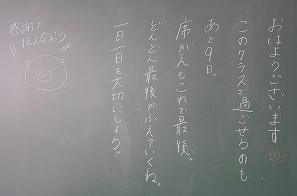 おはようございます
このクラスで過ごせるのも
あと9日。
席がえもこれで最後。
どんどん最後がふえていくね。
一日一日を大切にしよう。
感謝を
伝えよう